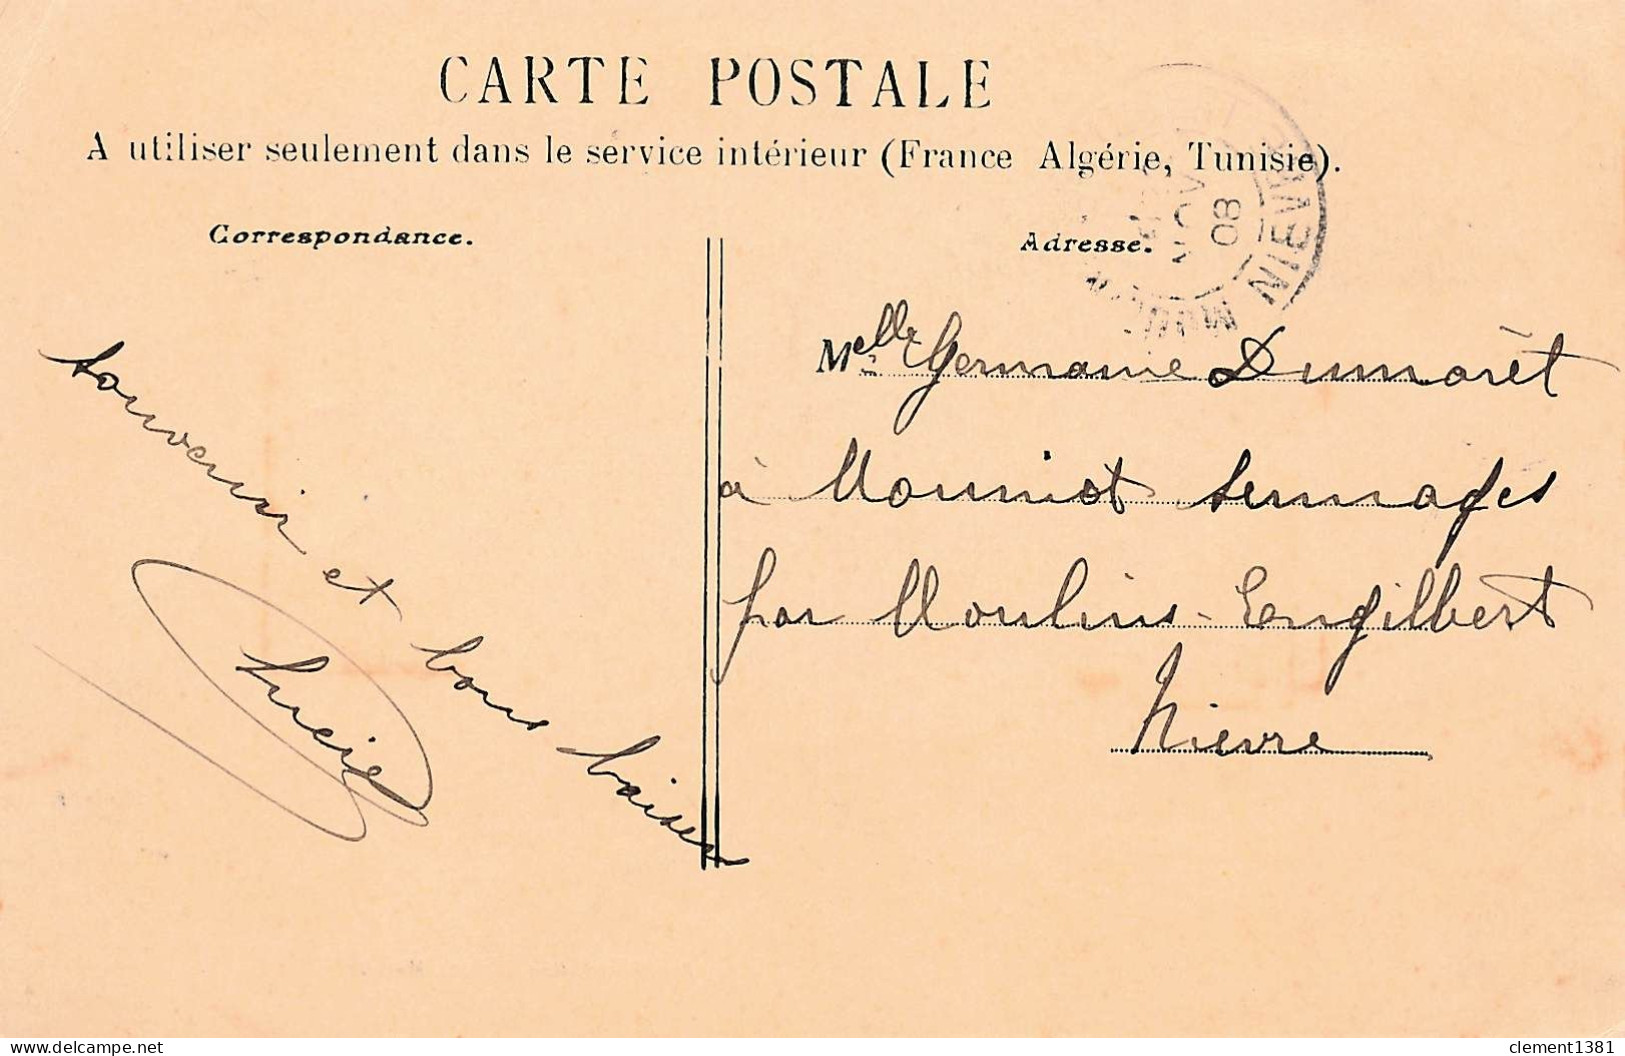 CARTE POSTALE
A utiliser seulement dans le service intérieur (France Algérie, Tunisie).
Correspondance.
Adresse.
NOV
08
NIEVRE
souvenir et bons baisers
Lucie
Melle Germaine Dumarèt
à Mouniot Sermages
par Moulins-Engilbert
Nièvre
delcampe.net
clement1381